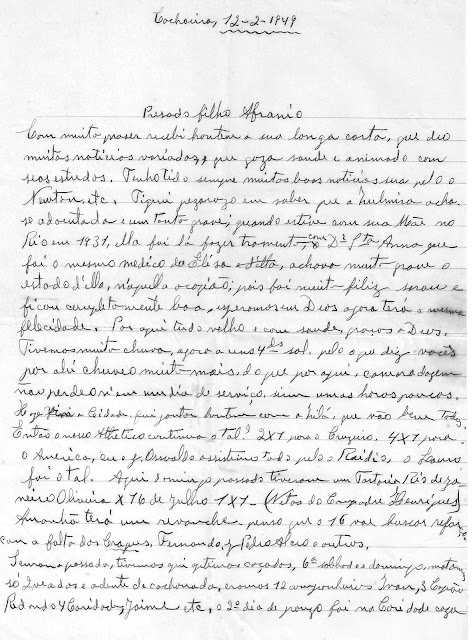 Cachoeira, 12-2-1949
Presado filho Afranio
Com muito praser recebi hontem a sua longa carta, que deu
muitas noticias variadas, que goza saude e animado com
seus estudos. Tenho tido sempre muitas boas noticias suas pelo o
Newton, etc. Fiquei pezarozo em saber que a Zulmira acha-
se adoentada e um tanto grave; quando estive com sua Mãe no
Rio em 1931, ella foi lá fazer com Dr Sta Anna que
foi o mesmo medico da Eliza e achava muito grave o
estado d'ella, n'aquella ocazião; pois foi muito filiz sarou e
ficou completamente boa, esperamos em Deus agora terá a mesma
felecidade. Por aqui tudo velho e com saude, graças a Deus.
Tivemos muito chuva, agora a uns 4 ds sol, pelo o que diz vocês
por ahi choveu muito mais, do que por aqui, camaradagem
não perderam nem um dia de serviço, sim umas horas poucos.
Hoje a Cidade, fui jantar hontem com a que vão bem todos
Então o nosso Athletico continua o tal? 2X1 para o Cruzeiro. 4X1 para
o America, eu e g. Osvaldo assistimos tudo pelo o Raidio, o Lauro
foi o tal. Aqui domingo passado tiveram um Rio de Ja-
neiro Oliveira X 16 de Julho 1X1 - (Netos do Compadre Henriques)
Amanhã terá um revanche penso que o 16 vae buscar refor
com a falta dos Crapes. Fernando, g Pedro Alcio e outros.
Semana passada, tivemos aqui otimas caçadas, 6ª sabbado e domingo, matamos
só 2 veados e a dente de cachorrada, eramos 12 companheiros Ivan, 3
4 Jaime etc, o 2º dia de pouzo foi na Caridade caza